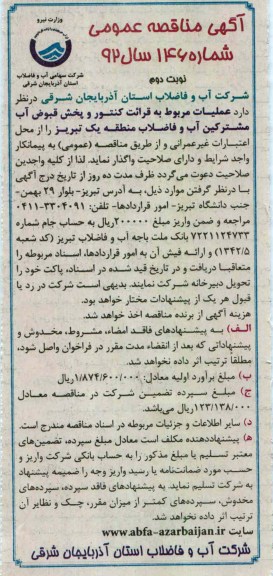 وزارت نیرو
شرکت سهامی آب و فاضلاب
استان آذربایجان شرقی
آگهی مناقصه عمومی
شماره ۱۴۶ سال ۹۲
نوبت دوم
شرکت آب و فاضلاب استان آذربایجان شرقی درنظر
دارد عملیات مربوط به قرائت کنتور و پخش قبوض آب
مشترکین آب و فاضلاب منطقه یک تبریز را از محل
اعتبارات غیرعمرانی و از طریق مناقصه (عمومی) به پیمانکار
واجد شرایط و دارای صلاحیت واگذار نماید. لذا از کلیه واجدین
صلاحیت دعوت می‌گردد ظرف مدت ده روز از تاریخ درج آگهی
با درنظر گرفتن موارد ذیل، به آدرس تبریز- بلوار ۲۹ بهمن-
جنب دانشگاه تبریز- امور قراردادها- تلفن: ۳۳۰۴۰۹۱-۰۴۱۱
مراجعه و ضمن واریز مبلغ ۲۰۰۰۰۰ریال به حساب جام شماره
۷۲۲۱۱۲۴۷۳۳ بانک ملت باجه آب و فاضلاب تبریز (کد شعبه
۱۳۴۲/۵) و ارائه فیش آن به امور قراردادها، اسناد مربوطه را
متعاقبا دریافت و در تاریخ قید شده در اسناد، پاکت خود را
تحویل دبیرخانه شرکت نمایند. بدیهی است شرکت در رد یا
قبول هر یک از پیشنهادات مختار خواهد بود.
هزینه آگهی از برنده مناقصه اخذ خواهد شد.
الف) به پیشنهادهای فاقد امضاء، مشروط، مخدوش و
پیشنهاداتی که بعد از انقضاء مدت مقرر در فراخوان واصل شود،
مطلقا ترتیب اثر داده نخواهد شد.
ب) مبلغ برآورد اولیه معادل: ۱/۸۷۴/۶۰۰/۰۰۰ریال
ج) مبلغ سپرده تضمین شرکت در مناقصه معادل
۱۲۳/۱۳۸/۰۰۰ریال می‌باشد.
د) سایر اطلاعات و جزئیات مربوطه در اسناد مناقصه مندرج است.
ه) پیشنهاددهنده مکلف است معادل مبلغ سپرده، تضمین‌های
معتبر تسلیم یا مبلغ مذکور را به حساب بانکی شرکت واریز و
حسب مورد ضمانت‌نامه یا رسید واریز وجه را ضمیمه پیشنهاد
به شرکت تسلیم نماید. به پیشنهادهای فاقد سپرده، سپرده‌های
مخدوش، سپرده‌های کمتر از میزان مقرر، چک و نظایر آن
ترتیب اثر داده نخواهد شد.
سایت www.abfa-azarbaijan.ir
شرکت آب و فاضلاب استان آذربایجان شرقی